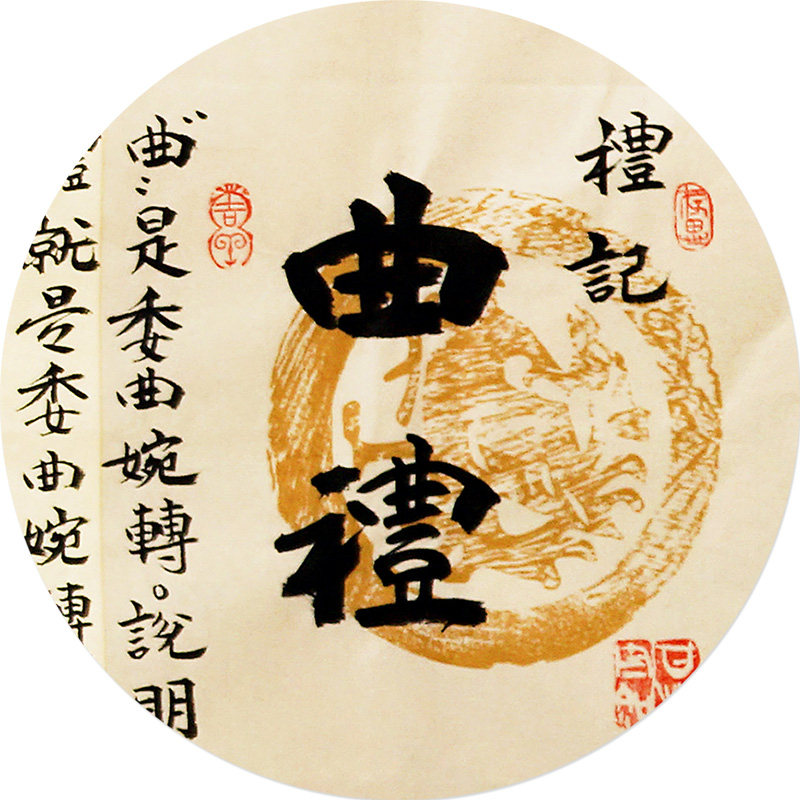 禮記
曲禮
曲：是委曲婉轉。說明
禮就是委曲婉轉